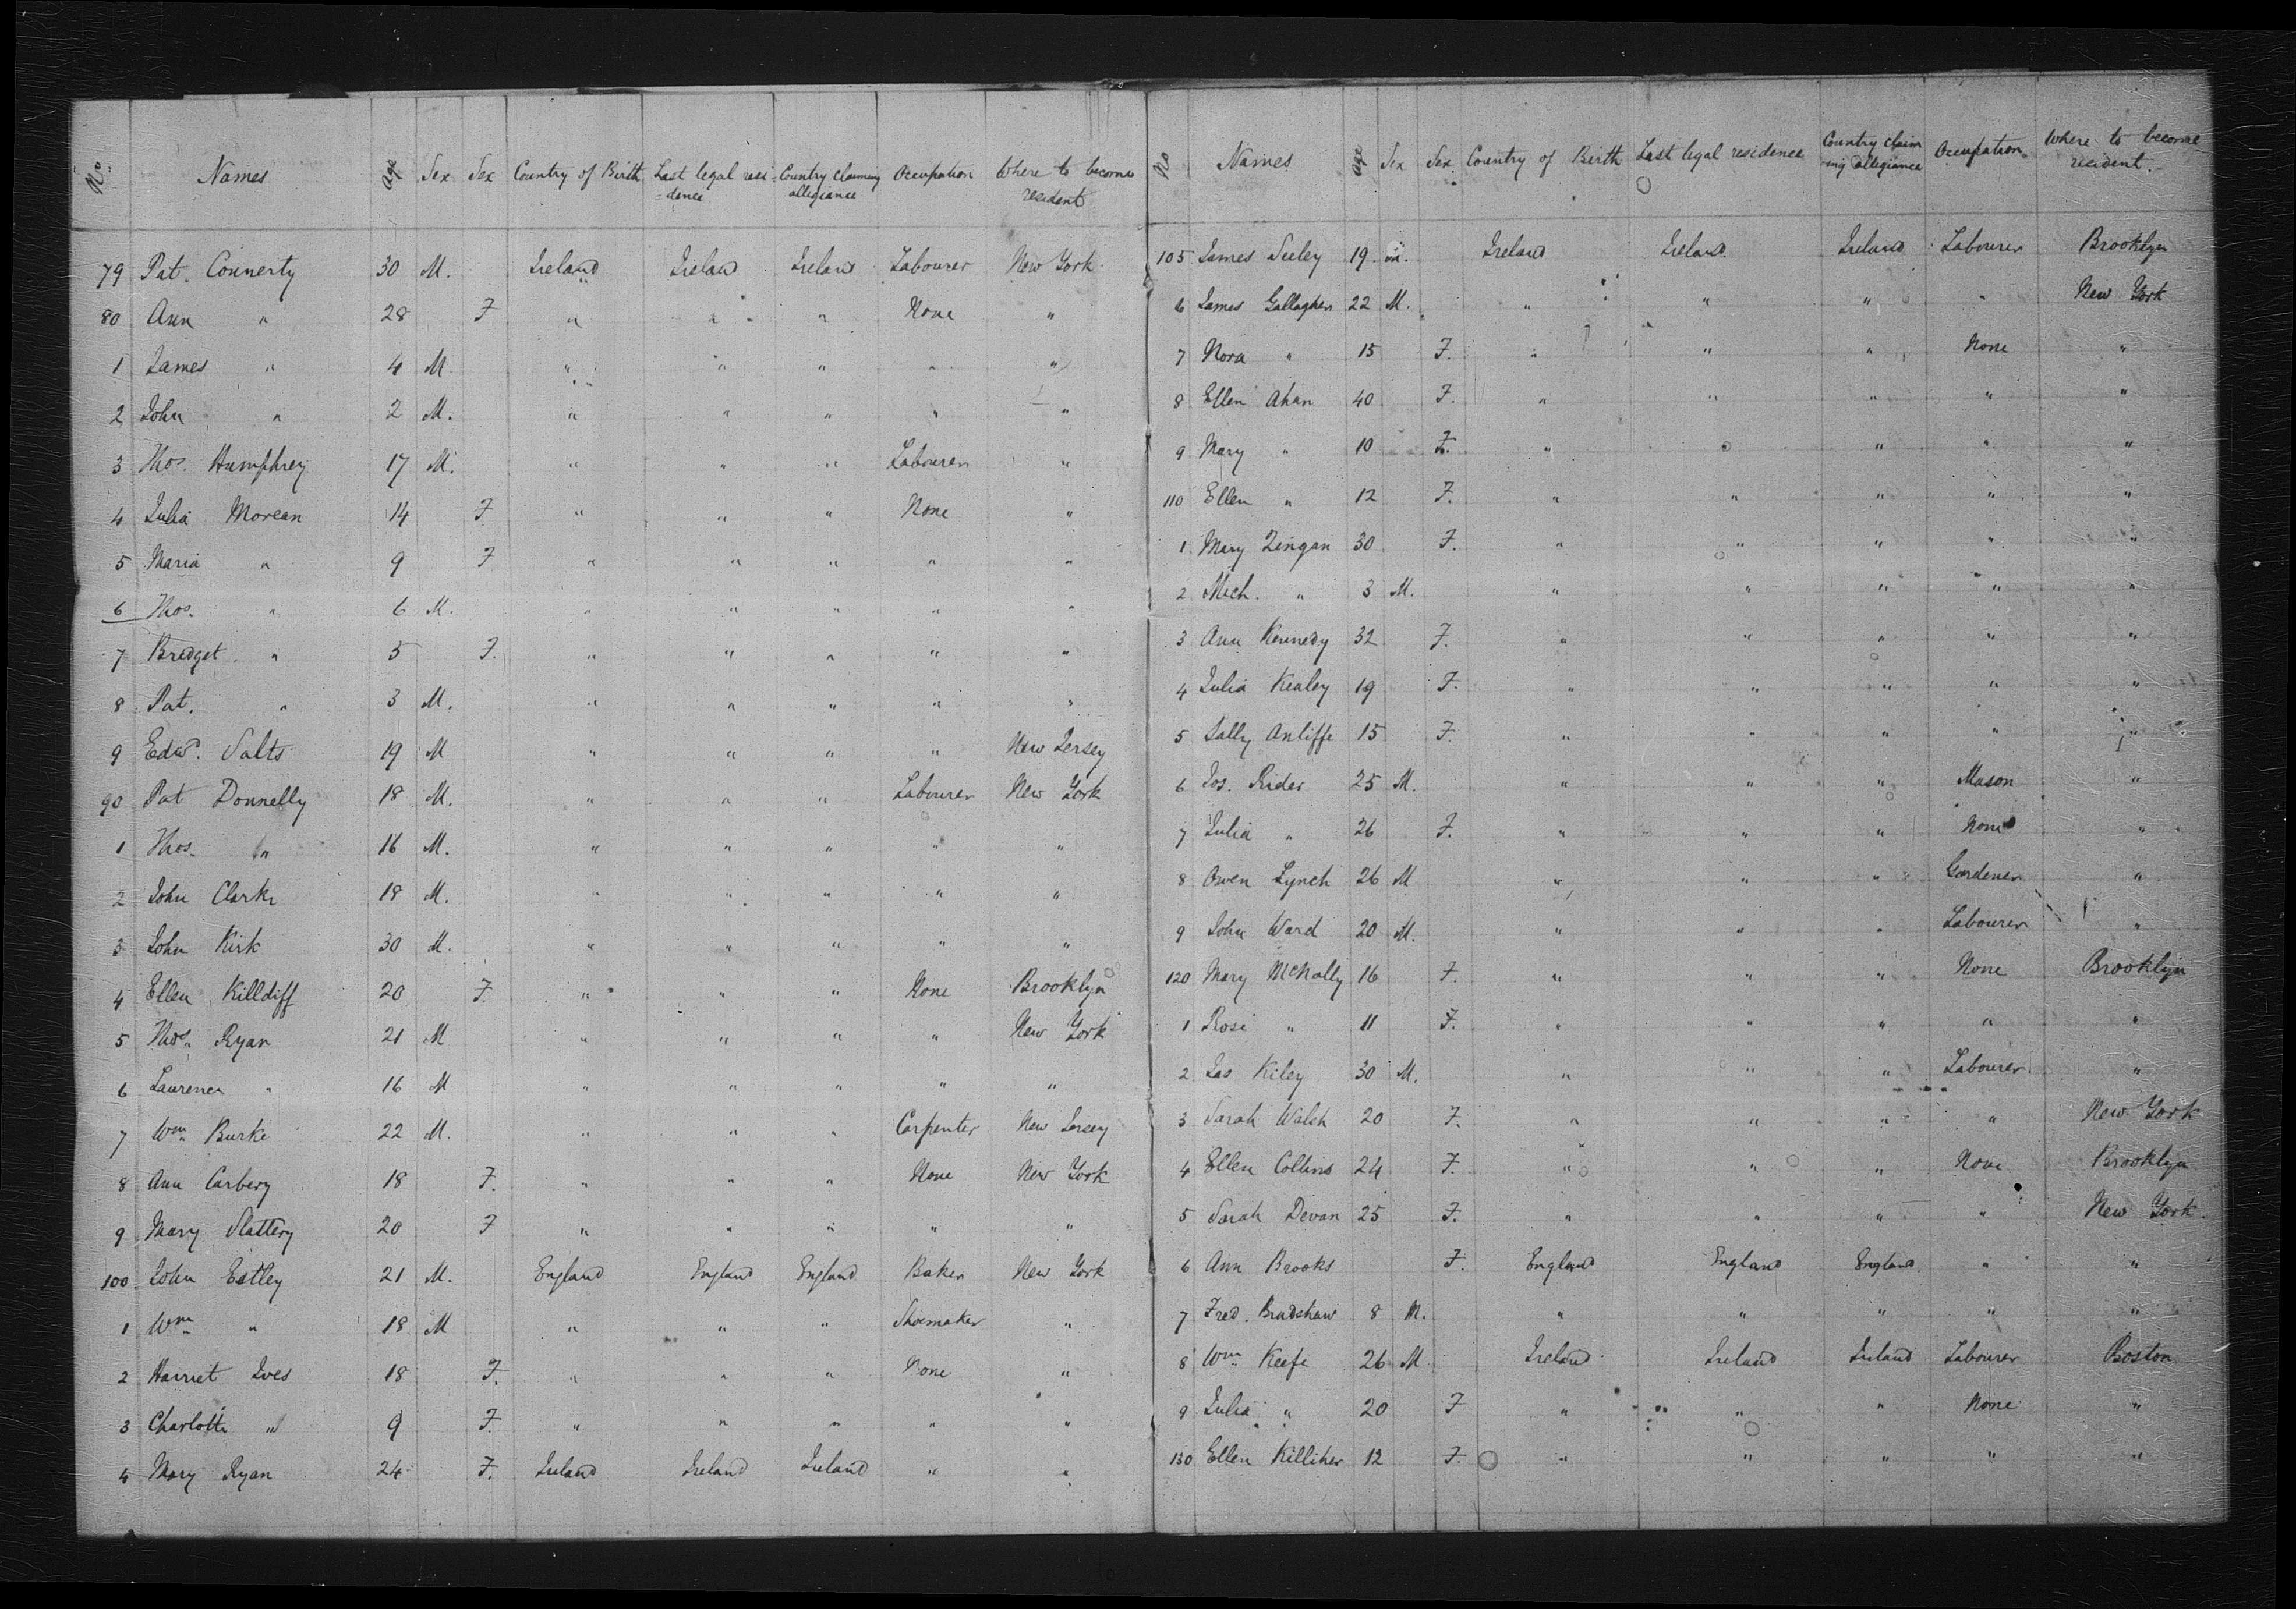 No. Names Age Sex Sex Country of Birth Last legal resi=dence Country claiming allegiance Occupation Where to become resident
79 Pat. Connerty 30 M. Ireland Ireland Ireland Labourer New York
80 Ann " 28 F " " " None "
1 James " 4 M " " " " "
2 John " 2 M. " " " " "
3 Thos. Humphrey 17 M. " " " Labourer "
4 Julia Morean 14 F " " " None "
5 Maria " 9 F " " " " "
6 Thos. " 6 M. " " " " "
7 Bridget " 5 F. " " " " "
8 Pat. " 3 M. " " " " "
9 Edwd. Salts 19 M " " " " New Jersey
90 Pat Donnelly 18 M. " " " Labourer New York
1 Thos. " 16 M. " " " " "
2 John Clarke 18 M. " " " " "
3 John Kirk 30 M. " " " " "
4 Ellen Killdiff 20 F. " " " None Brooklyn
5 Thos. Ryan 21 M " " " " New York
6 Laurence " 16 M " " " " "
7 Wm Burke 22 M. " " " Carpenter New Jersey
8 Ann Carbery 18 F. " " " None New York
9 Mary Slattery 20 F " " " " "
100 John Estley 21 M. England England England Baker New York
1 Wm " 18 M " " " Shoemaker "
2 Harriet Ives 18 F. " " " None "
3 Charlotte " 9 F. " " " " "
4 Mary Ryan 24 F. Ireland Ireland Ireland " "
No Names Age Sex Sex. Country of Birth Last legal residence Country claim=ing allegiance Occupation Where to become resident.
105 James Seeley 19 m. Ireland Ireland Ireland Labourer Brooklyn
6 James Gallagher 22 M. " " " " New York
7 Nora " 15 F. " " " None "
8 Ellen Ahan 40 F. " " " " "
9 Mary " 10 F. " " " " "
110 Ellen " 12 F. " " " " "
1 Mary Zingan 30 F. " " " " "
2 Mich. " 3 M. " " " " "
3 Ann Kennedy 32 F. " " " " "
4 Julia Kealey 19 F. " " " " "
5 Sally Anliffe 15 F. " " " " "
6 Jos. Rider 25 M. " " " Mason "
7 Julia " 26 F. " " " None "
8 Owen Lynch 26 M " " " Gardener "
9 John Ward 20 M. " " " Labourer "
120 Mary McNally 16 F. " " " None Brooklyn
1 Rose " 11 F. " " " " "
2 Jas Kiley 30 M. " " " Labourer "
3 Sarah Walsh 20 F. " " " " New York
4 Ellen Collins 24 F. " " " None Brooklyn
5 Sarah Devan 25 F. " " " " New York.
6 Ann Brooks F. England England England " "
7 Fred. Bradshaw 8 M. " " " " "
8 Wm Keefe 26 M Ireland Ireland Ireland Labourer Boston
9 Julia " 20 F " " " None "
130 Ellen Killiher 12 F. " " " " "